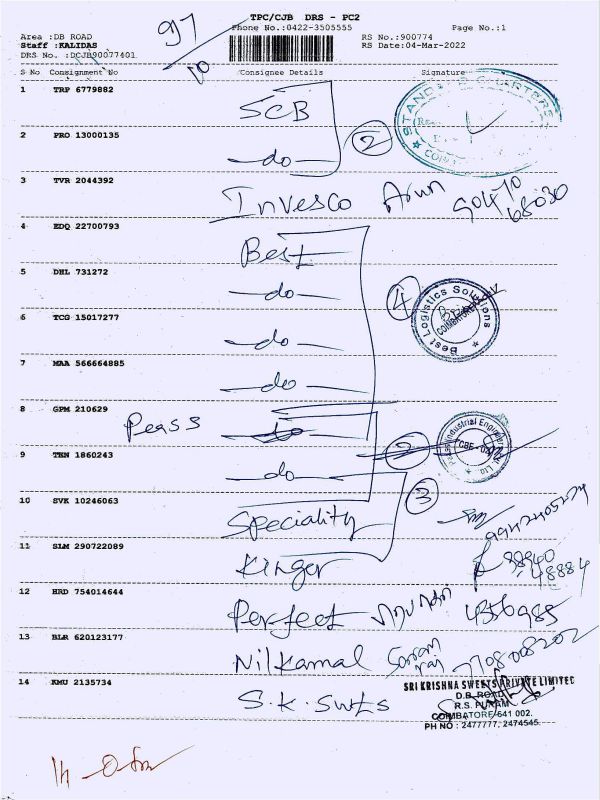 TPC/CJB DRS - PC2
Phone No.:0422-3505555 Page No.:1
Area :DB ROAD RS No.:900774
Staff :KALIDAS RS Date:04-Mar-2022
DRS No. :DCJB90077401
97
10
S No Consignment No Consignee Details Signature
1 TRP 6779882 SCB
2 PRO 13000135 -do- 2
3 TVR 2044392 Invesco Arun 90470
68030
4 EDQ 22700793 Best
5 DHL 731272 -do- 4
Best Logistics Solutions
COIMBATORE
6 TCG 15017277 -do-
7 MAA 566664885 -do-
8 GPM 210629 Peass
9 TEN 1860243 -do- 3
10 SVK 10246063 Speciality
11 SLM 290722089 Kinger 98940
48884
12 HRD 754014644 Perfect 4356985
13 BLR 620123177 Nilkamal
14 KMU 2135734 S.K. Swts
SRI KRISHNA SWEETS PRIVATE LIMITED
D.B. ROAD
R.S. PURAM
COIMBATORE 641 002.
PH NO : 2477777, 2474545.